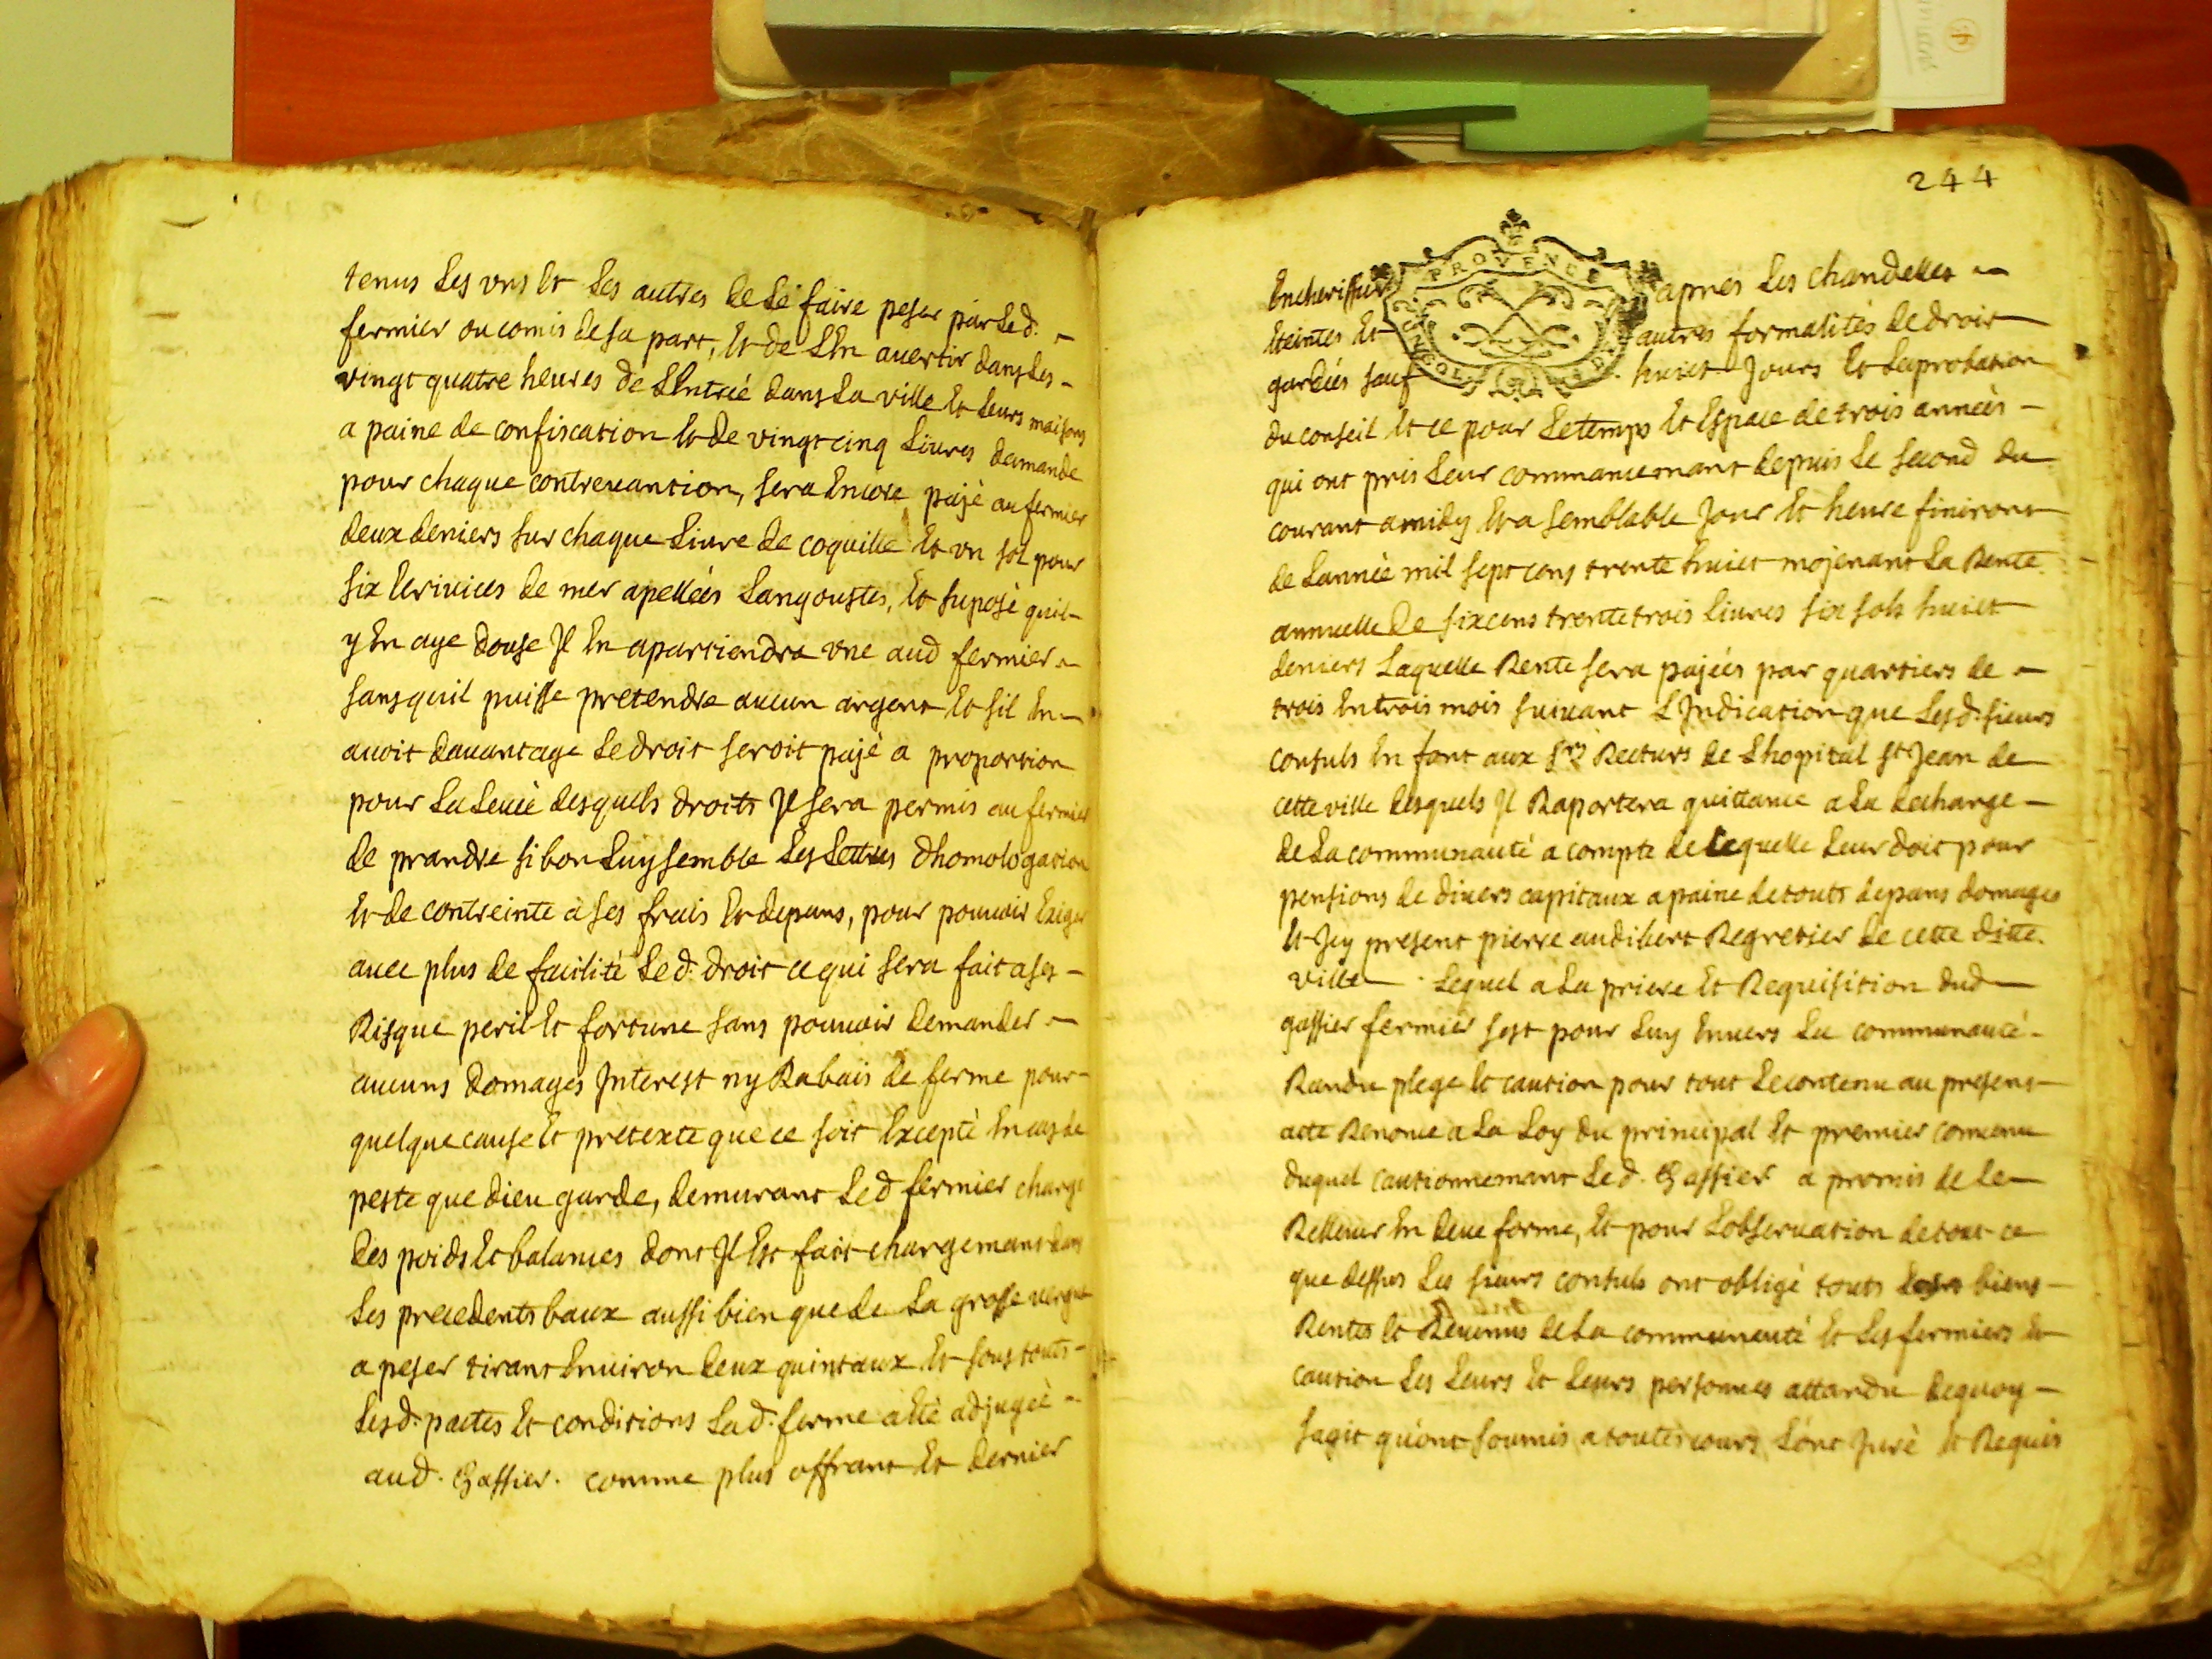 tenus Les vns Et Les autres de Le faire peser par Led.
fermier ou comis de sa part, Et de L'En auertir dans Les
vingt quatre heures de L'Entreé dans La ville Et Leurs maisons
a paine de confiscation Et de vingt cinq Liures damande
pour chaque contreuantion, sera Encore payé au fermier
deux deniers sur chaque Liure de coquille Et vn sol pour
six Ecriuices de mer apelleés Langoustes, Et suposé quil
y En aye douse Jl En apartiendra vne aud fermier
sans quil puisse pretendre aucun argent Et sil En
auoit dauantage Le droit seroit payé a proportion
pour La Leueé desquels droits Jl sera permis au fermier
de prandre si bon Luy semble Les Lettres dhomologation
Et de contreinte à ses frais Et depans, pour pouuoir Exiger
auec plus de facilité Led. droit ce qui sera fait a ses
Risque peril Et fortune sans pouuoir demander
aucuns domages Jnterest ny Rabais de ferme pour
quelque cause Et pretexte que ce soit Excepté En cas de
peste que dieu garde, demurant Led fermier chargé
des poids Et balances dont Jl Est fait chargemant dans
Les precedents baux aussi bien que de La grosse vergue
a peser tirant Enuiron deux quintaux Et sous touts
Lesd. pactes Et conditions Lad. ferme a Eté adjugeé
aud. Gassier. comme plus offrant Et dernier
244
PROVENCE
Encherisseur apres Les chandelles
Eteintes Et autres formalités de droit
gardeés sauf huict Jours Et Laprobation
du conseil Et ce pour Le temps Et Espace de trois anneés
qui ont pris Leur commancemant depuis Le second du
courant a midy Et a semblable Jour Et heure finiront
de Lanneé mil sept cens trente huict moyenant La Rente
annuelle de six cens trente trois Liures six sols huict
deniers Laquelle Rente sera payeés par quartiers de
trois En trois mois suiuant L'Jndication que Lesd. sieurs
consuls En font aux Srs Recturs de Lhopital St Jean de
cette ville desquels Jl Raportera quittance a La decharge
de La communauté a compte de Lequelle Leur doit pour
pensions de diuers capitaux a paine de touts depans domages
Et Jcy present pierre audibert Regretier de cette ditte
ville Lequel a La priere Et Requisition dud
gassier fermier sest pour Luy Enuers La communauté
Randu plege Et caution pour tout Le contenu au present
acte Renonce a La Loy du principal Et premier conuenu
duquel cautionnemant Led. Gassier a promis de Le
Relleuer En deue forme, Et pour Lobseruation de tout ce
que dessus Les sieurs consuls ont obligé touts Les biens
Rentes Et Reuenus de La communauté Et Les fermiers Et
caution Les Leurs Et Leurs personnes attandu dequoy
sagit qu'ont soumis a toutes cours L'ont Juré Et Requis